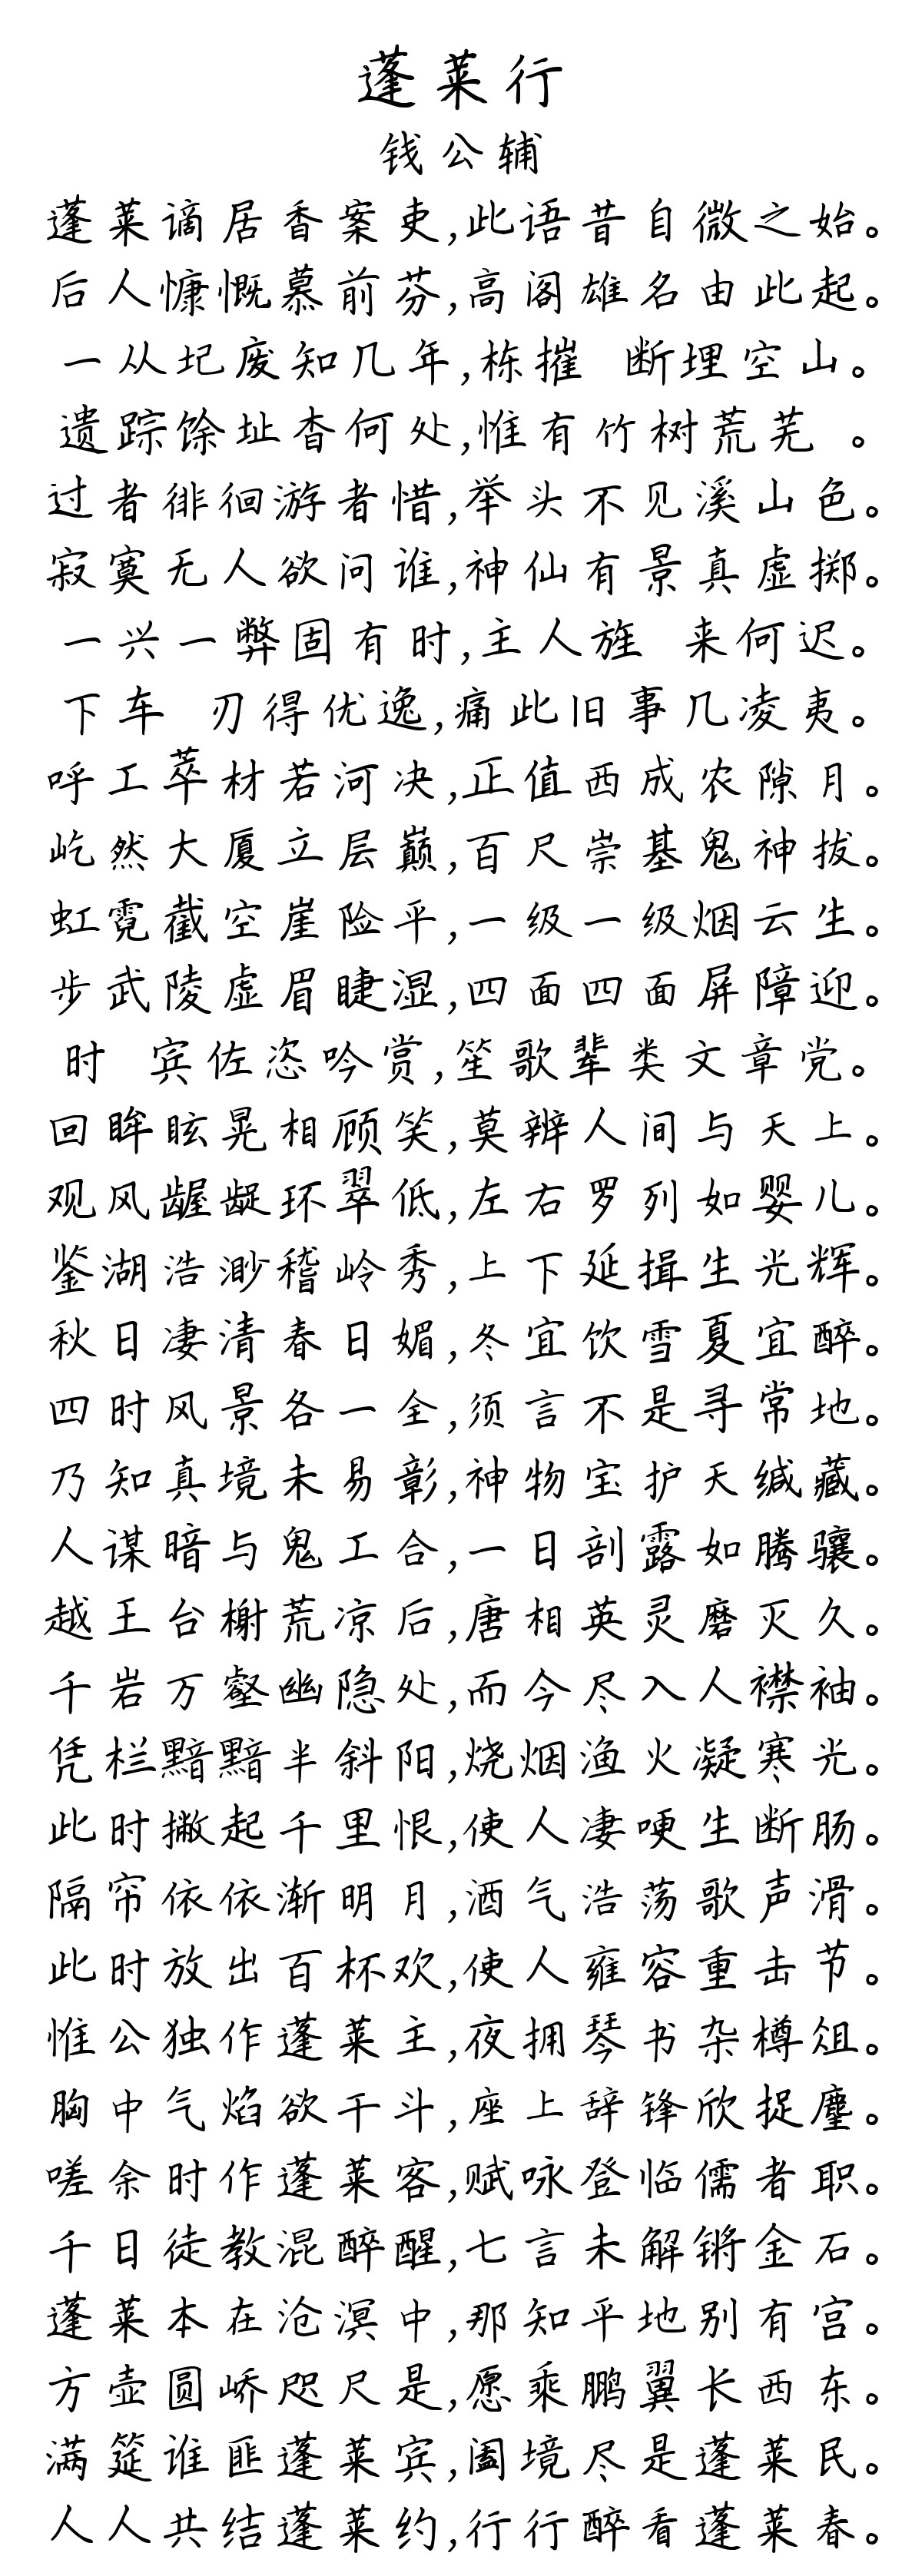 蓬莱行
钱公辅
蓬莱谪居香案吏,此语昔自微之始。
后人慷慨慕前芬,高阁雄名由此起。
一从圮废知几年,栋摧 断埋空山。
遗踪馀址杳何处,惟有竹树荒芜 。
过者徘徊游者惜,举头不见溪山色。
寂寞无人欲问谁,神仙有景真虚掷。
一兴一弊固有时,主人旌 来何迟。
下车 刃得优逸,痛此旧事几凌夷。
呼工萃材若河决,正值西成农隙月。
屹然大厦立层巅,百尺崇基鬼神拔。
虹霓截空崖险平,一级一级烟云生。
步武陵虚眉睫湿,四面四面屏障迎。
时 宾佐恣吟赏,笙歌辈类文章党。
回眸眩晃相顾笑,莫辨人间与天上。
观风龌龊环翠低,左右罗列如婴儿。
鉴湖浩渺稽岭秀,上下延揖生光辉。
秋日凄清春日媚,冬宜饮雪夏宜醉。
四时风景各一全,须言不是寻常地。
乃知真境未易彰,神物宝护天缄藏。
人谋暗与鬼工合,一日剖露如腾骧。
越王台榭荒凉后,唐相英灵磨灭久。
千岩万壑幽隐处,而今尽入人襟袖。
凭栏黯黯半斜阳,烧烟渔火凝寒光。
此时撇起千里恨,使人凄哽生断肠。
隔帘依依渐明月,酒气浩荡歌声滑。
此时放出百杯欢,使人雍容重击节。
惟公独作蓬莱主,夜拥琴书杂樽俎。
胸中气焰欲干斗,座上辞锋欣捉麈。
嗟余时作蓬莱客,赋咏登临儒者职。
千日徒教混醉醒,七言未解锵金石。
蓬莱本在沧溟中,那知平地别有宫。
方壶圆峤咫尺是,愿乘鹏翼长西东。
满筵谁匪蓬莱宾,阖境尽是蓬莱民。
人人共结蓬莱约,行行醉看蓬莱春。